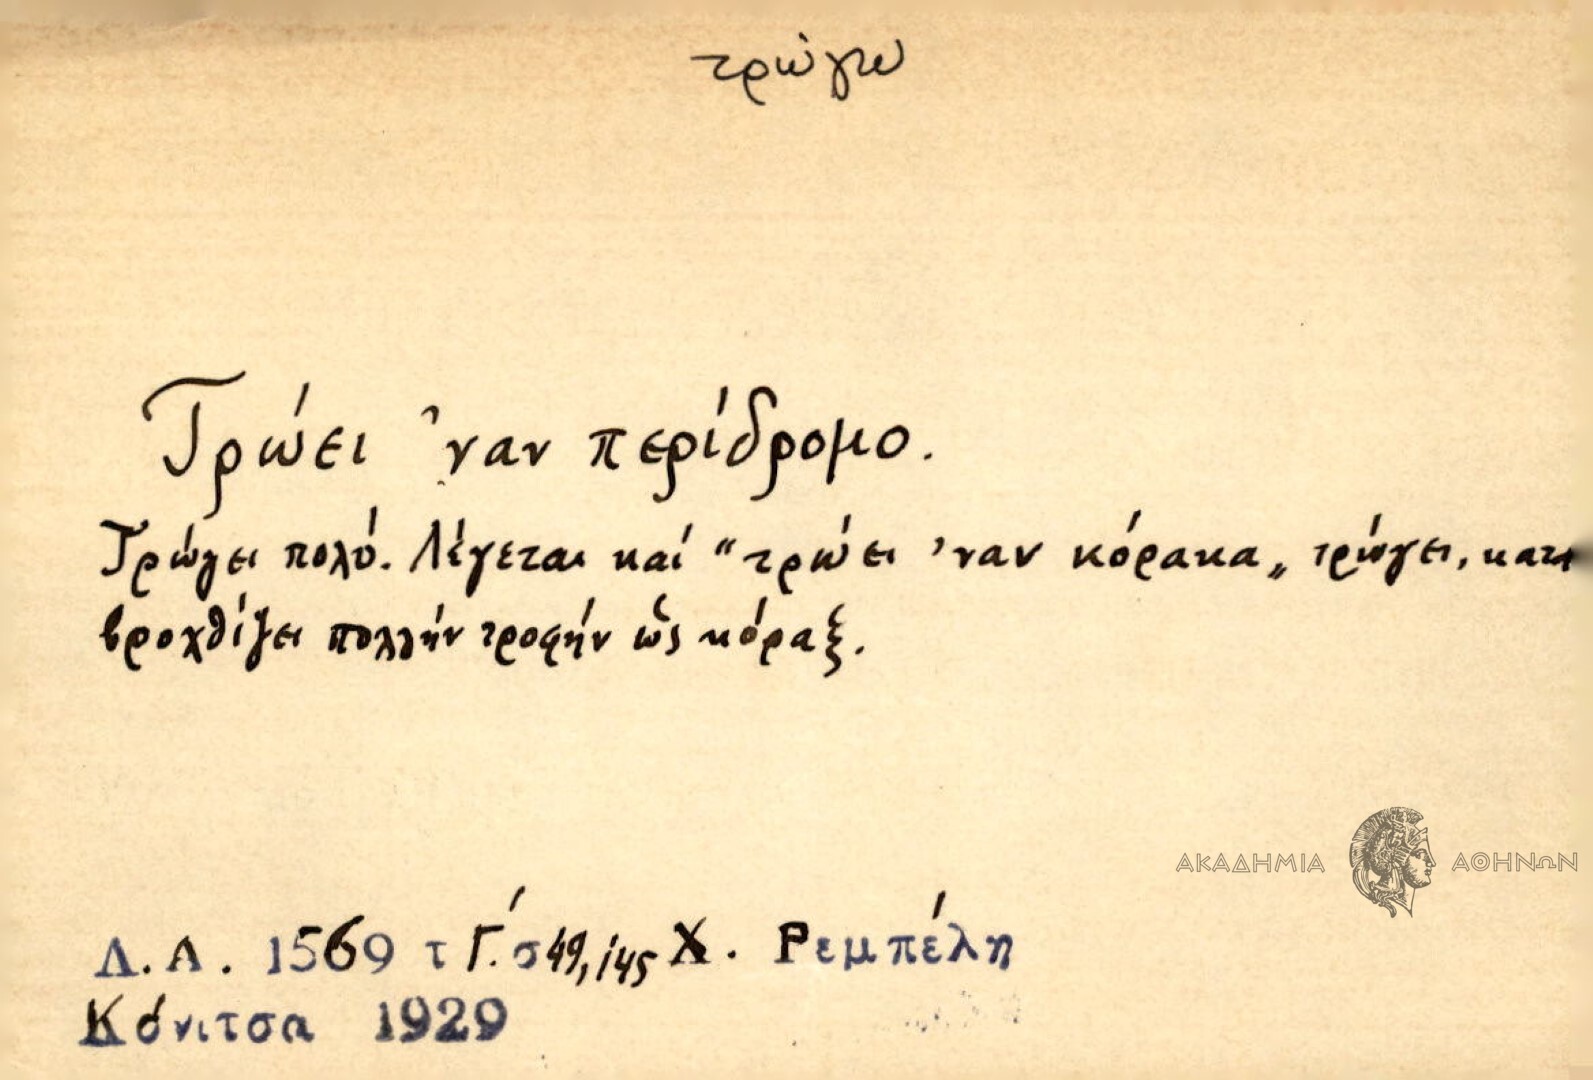 τρώγω
Τρώει ᾿ναν περίδρομο.
Τρώγει πολύ. Λέγεται καί "τρώει ᾿ναν κόρακα„ τρώγει, κατα
βροχθίζει πολλήν τροφήν ὡς κόραξ.
ΑΚΑΔΗΜΙΑ ΑΘΗΝΩΝ
Λ.Α. 1569 τ Γ΄. σ 49, 145 Χ. Ρεμπέλη
Κόνιτσα 1929